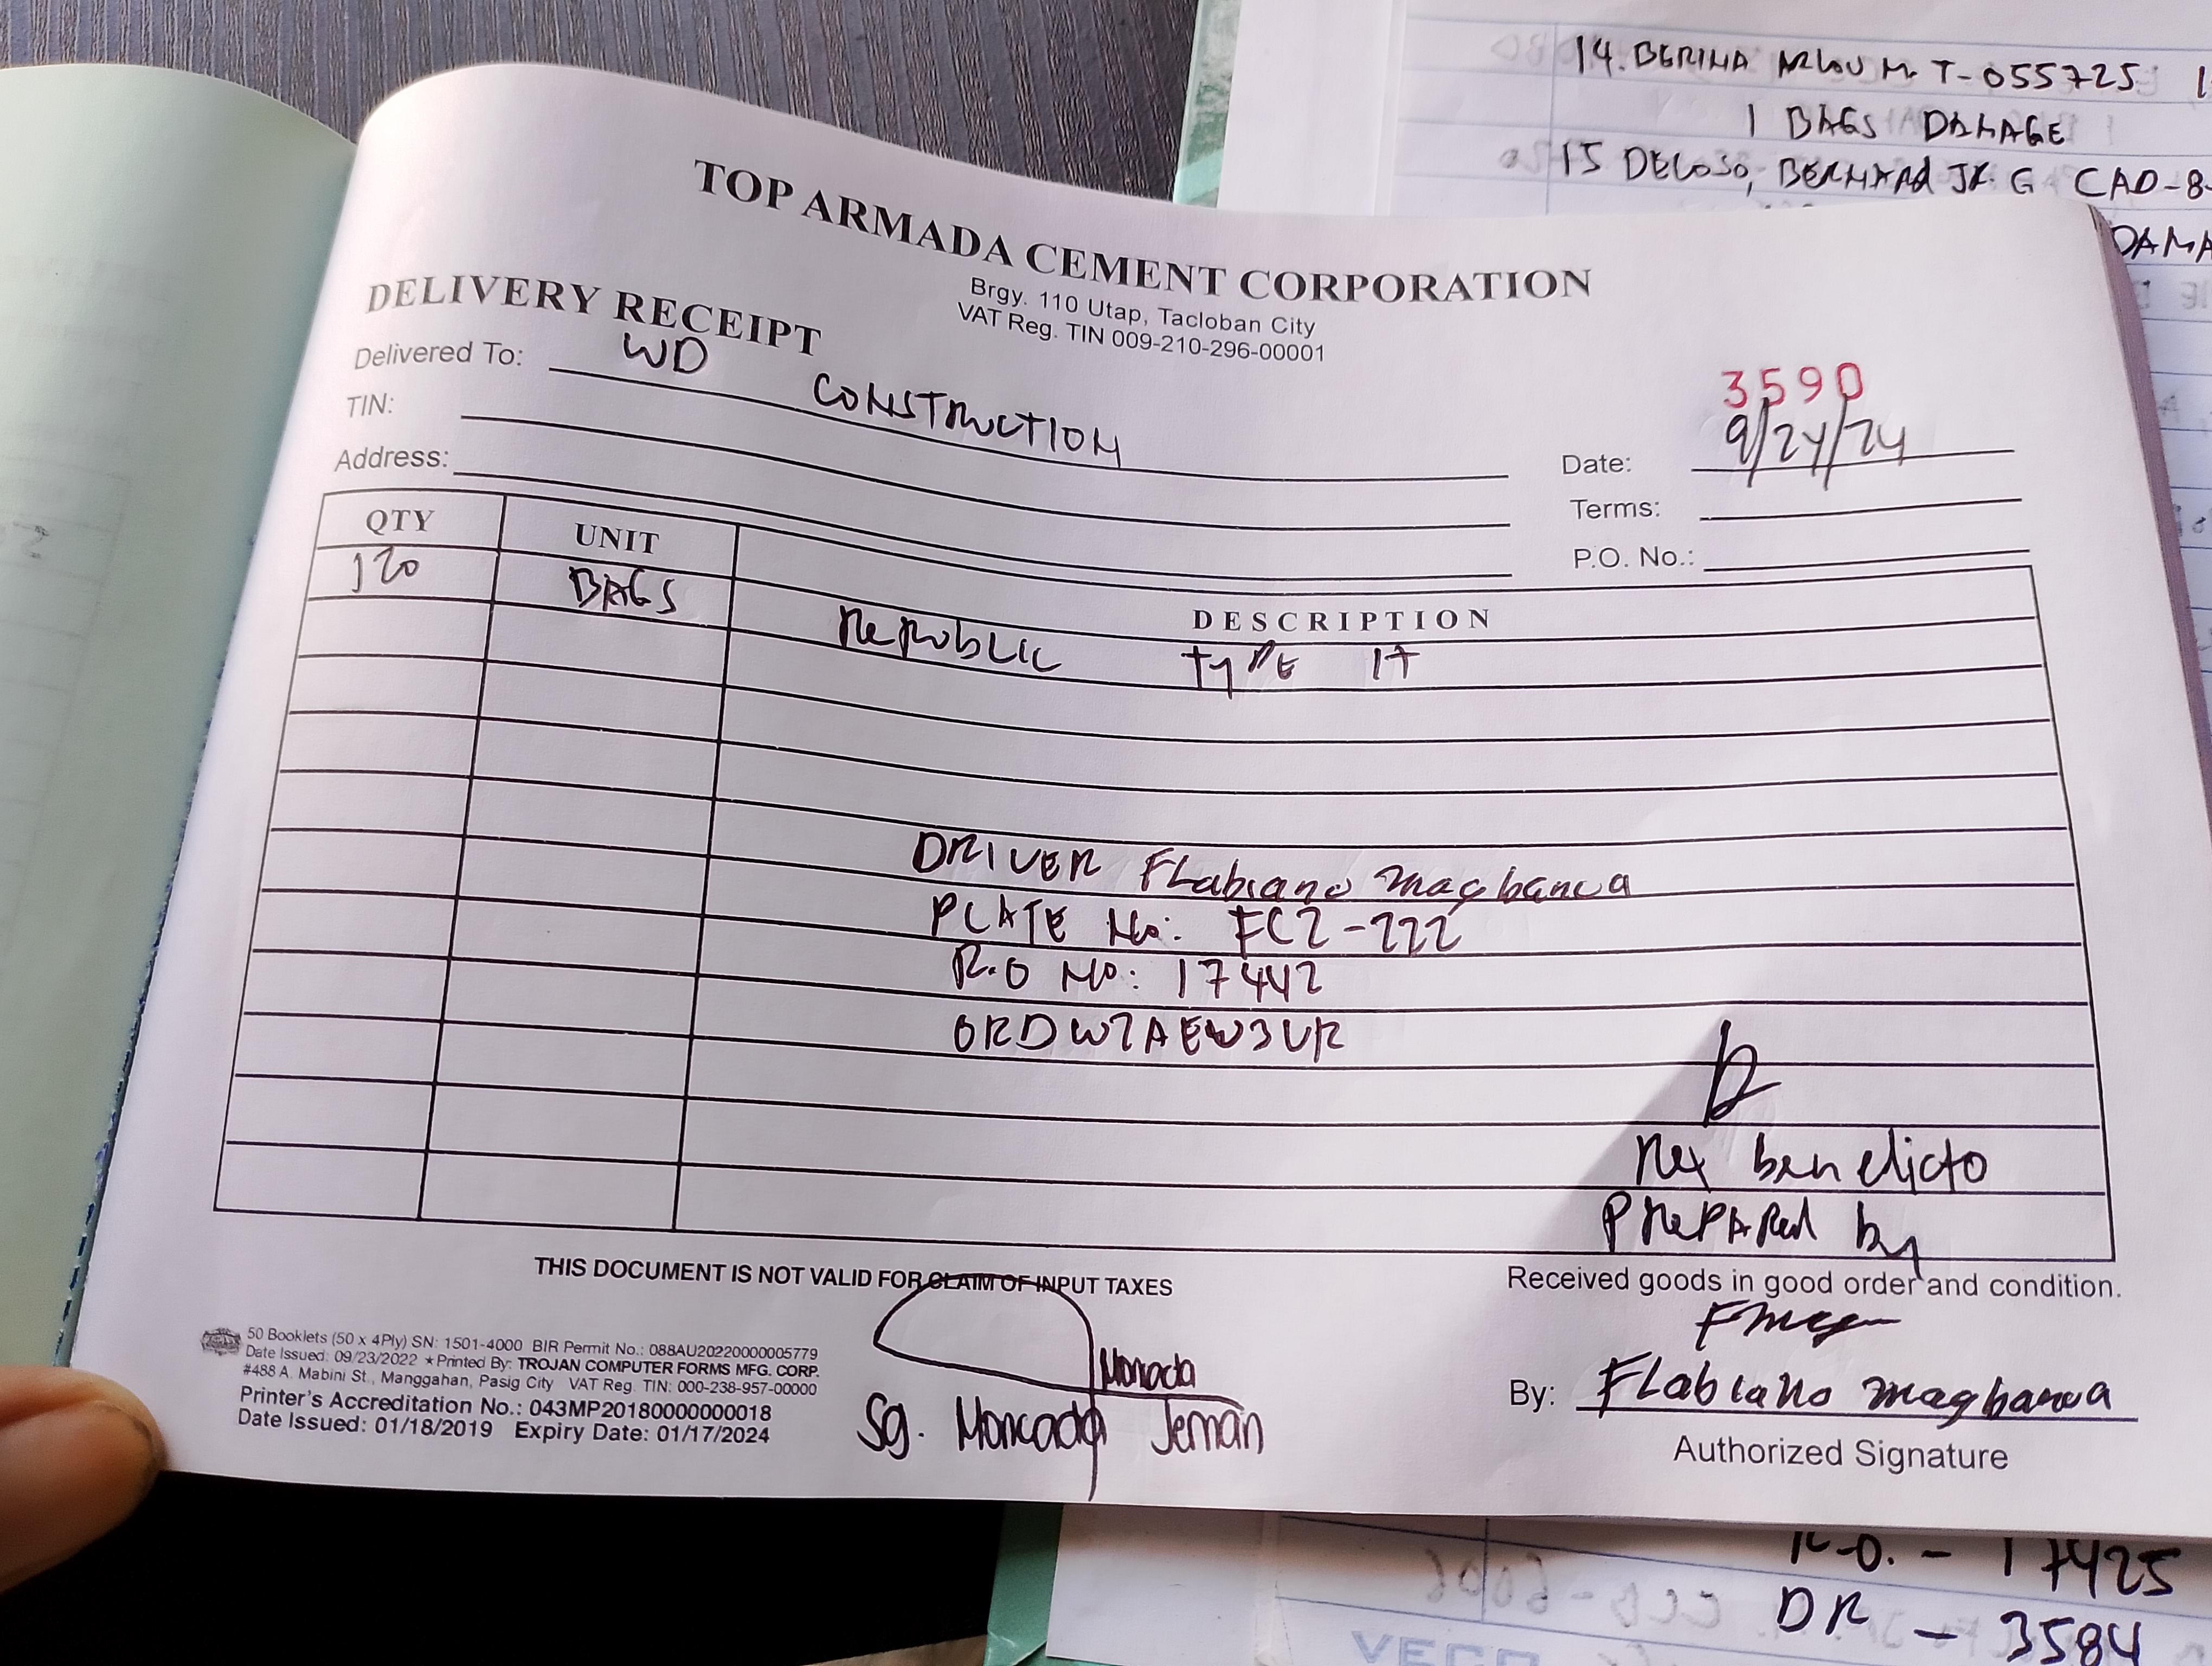 14. BERINA ARLOU M. T-055725
1 BAGS DAMAGE
15 DELOSO, BERNARD JR. G CAD-8-
DAMA
TOP ARMADA CEMENT CORPORATION
Brgy. 110 Utap, Tacloban City
VAT Reg. TIN 009-210-296-00001
DELIVERY RECEIPT
3590
Delivered To: WD CONSTRUCTION
Date: 9/24/24
TIN:
Terms:
Address:
P.O. No.:
QTY UNIT DESCRIPTION
120 BAGS REPUBLIC TYPE 1T
DRIVER FLabiano magbanua
PLATE No: FCZ-222
R.O No: 17442
ORDW7AEW3UR
Rex benedicto
PREPARed by
THIS DOCUMENT IS NOT VALID FOR CLAIM OF INPUT TAXES
Received goods in good order and condition.
50 Booklets (50 x 4Ply) SN: 1501-4000 BIR Permit No.: 088AU20220000005779
Date Issued: 09/23/2022 ★Printed By: TROJAN COMPUTER FORMS MFG. CORP.
#488 A. Mabini St., Manggahan, Pasig City VAT Reg. TIN: 000-238-957-00000
Printer's Accreditation No.: 043MP20180000000018
Date Issued: 01/18/2019 Expiry Date: 01/17/2024
Moncada
Sg. Moncada Jeman
By: FLabiano magbanua
Authorized Signature
R.O. - 17425
DR - 3584
VECO